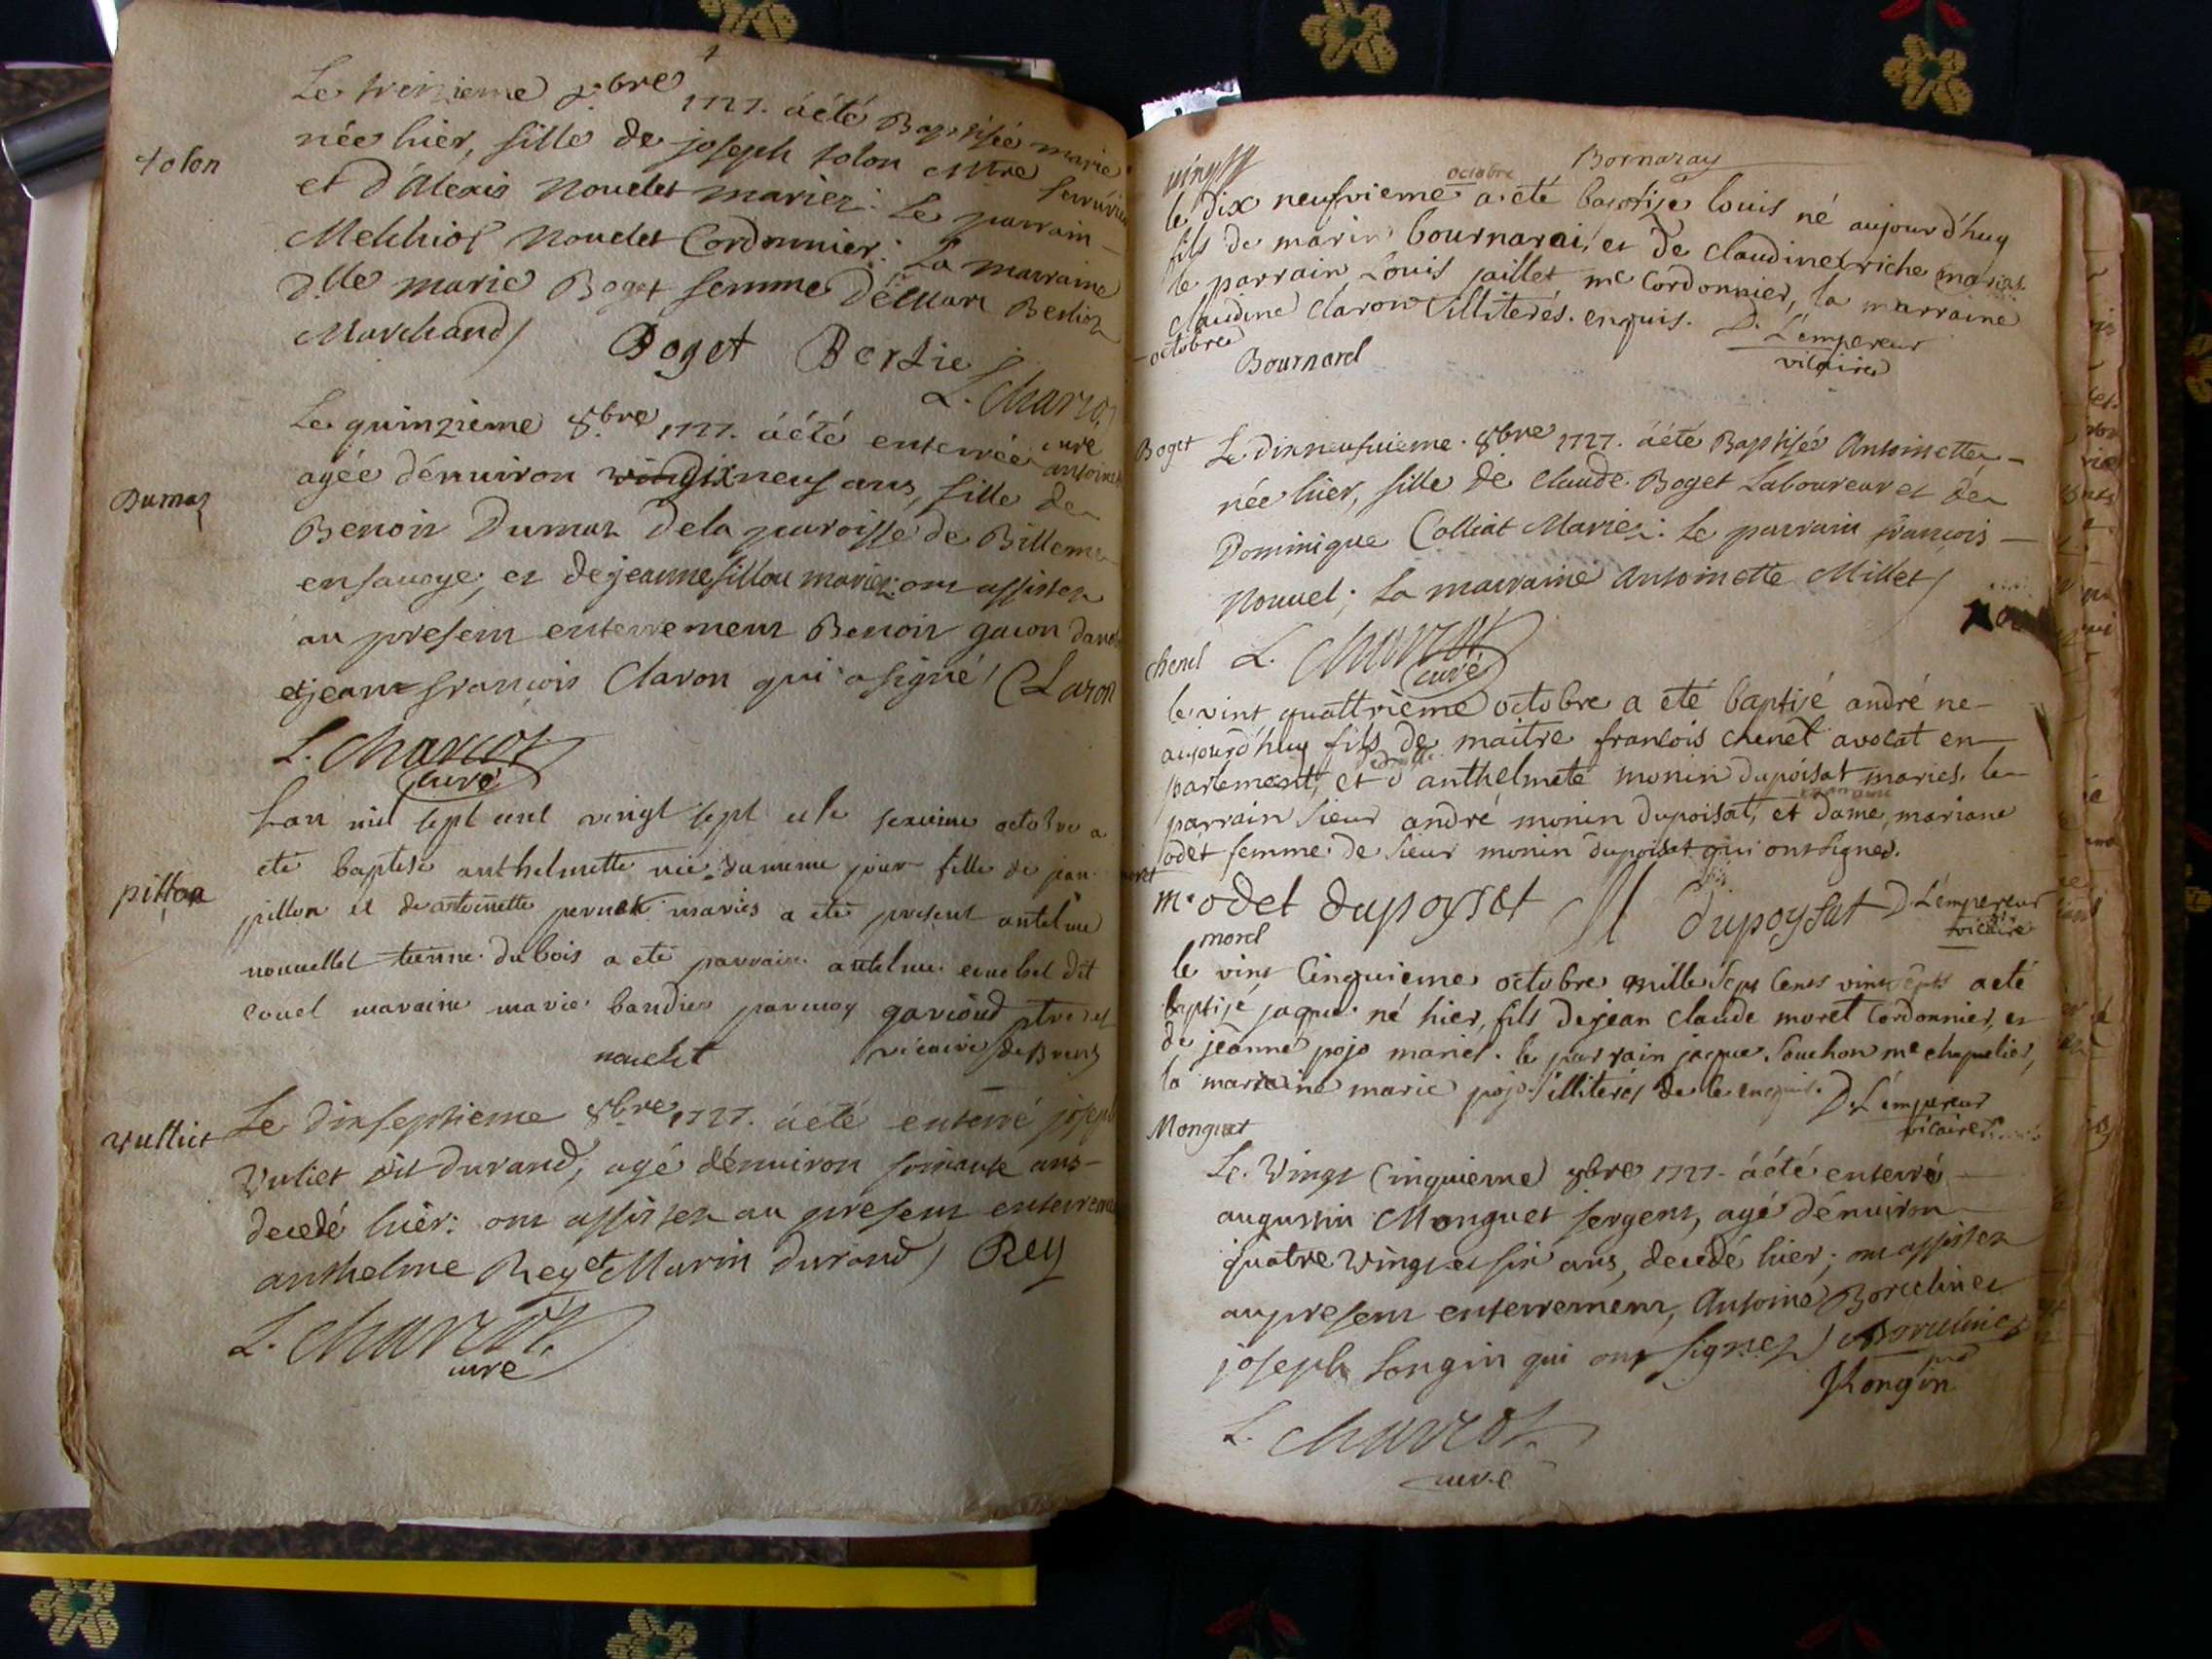 Le treizieme 8.bre 1727. áété Baptisée marie
tolon
née hier, fille de joseph tolon Mtre serrurier
et d'Alexis Nouelet mariez: Le parrain
Melchiol Nouelet Cordonnier: La marraine
d.lle marie Boget femme Marc Berlioz
Marchand/
Boget Berlie
L. Charcot
curé
Le quinzieme 8.bre 1727. áété enterrée antoinette
Dumaz
agée dénuiron dixneuf ans, fille de
Benoit Dumaz Dela paroisse de Billeme
ensauoye; et dejeanne fillou mariez: ont assistez
au present enterrement Benoit gacon
etjean françois Claron qui asigné/ Claron
L. Charcot
curé
Lan mil sept cent vingt sept et le sezieme octobre a
eté baptisé anthelmette née du meme jour fille de jean
pitton
pitton et de antoinette pernet mariés a eté present antelme
nouuellet tienne dubois a eté parrain antelme dit
marraine marie baudier par moy gavioud ptre et
nouelet
vicaire de Brens
Le dixseptieme 8.bre 1727. áété enterré joseph
Vulliet
Vuliet dit durand, agé dénuiron soixante ans
decedé hier: ont assistez au present enterrement
anthelme Rey et Marin durand/ Rey
L. Charcot
curé
Bornaray
octobre
le dix neufvieme a été baptisé louis né aujourd'huy
fils de marin bournarai, et de claudine triche mariés
le parrain Louis jaillet, me cordonnier, la marraine
claudine claron illiterés. enquis. D. L'empereur
octobre
vicaire
Bournarel
Boget
Le dixneufuieme. 8bre 1727. áété Baptisée Antoinette
née hier, fille de claude Boget Laboureur et de
Dominique Colliat Mariez: Le parrain françois
Nouuel; La marraine Antoinette Millet/
chenel
L. Charcot
curé
le vint quattrième octobre a eté baptisé andré né
aujourd'huy fils de maitre françois chenel avocat en
parlement, et d anthelmete monin dupoisat mariés. le
parrain sieur andré monin dupoisat, et dame, mariane
marraine
odet femme de sieur monin dupoisat qui ont signés.
m. odet dupoysat M dupoysat D. L'empereur
vicaire
morel
le vint cinquieme octobre mille sept cents vint sept a eté
baptisé jaque né hier, fils dejean claude moret cordonnier, et
de jeanne pojo mariés. le parrain jaque souchon me chapelier,
la marraine marie pojo illiterés de le enquis. D. L'empereur
vicaire
Monguet
Le Vingt Cinquieme 8bre 1727. áété enterré
augustin Monguet sergent, agé dénuiron
quatre Vingt et six ans, decedé hier; ont assistez
aupresent enterrement, Antoine Borcelinet
joseph Longin qui ont signez/ Borcelinet
JLongin
L. Charcot
curé